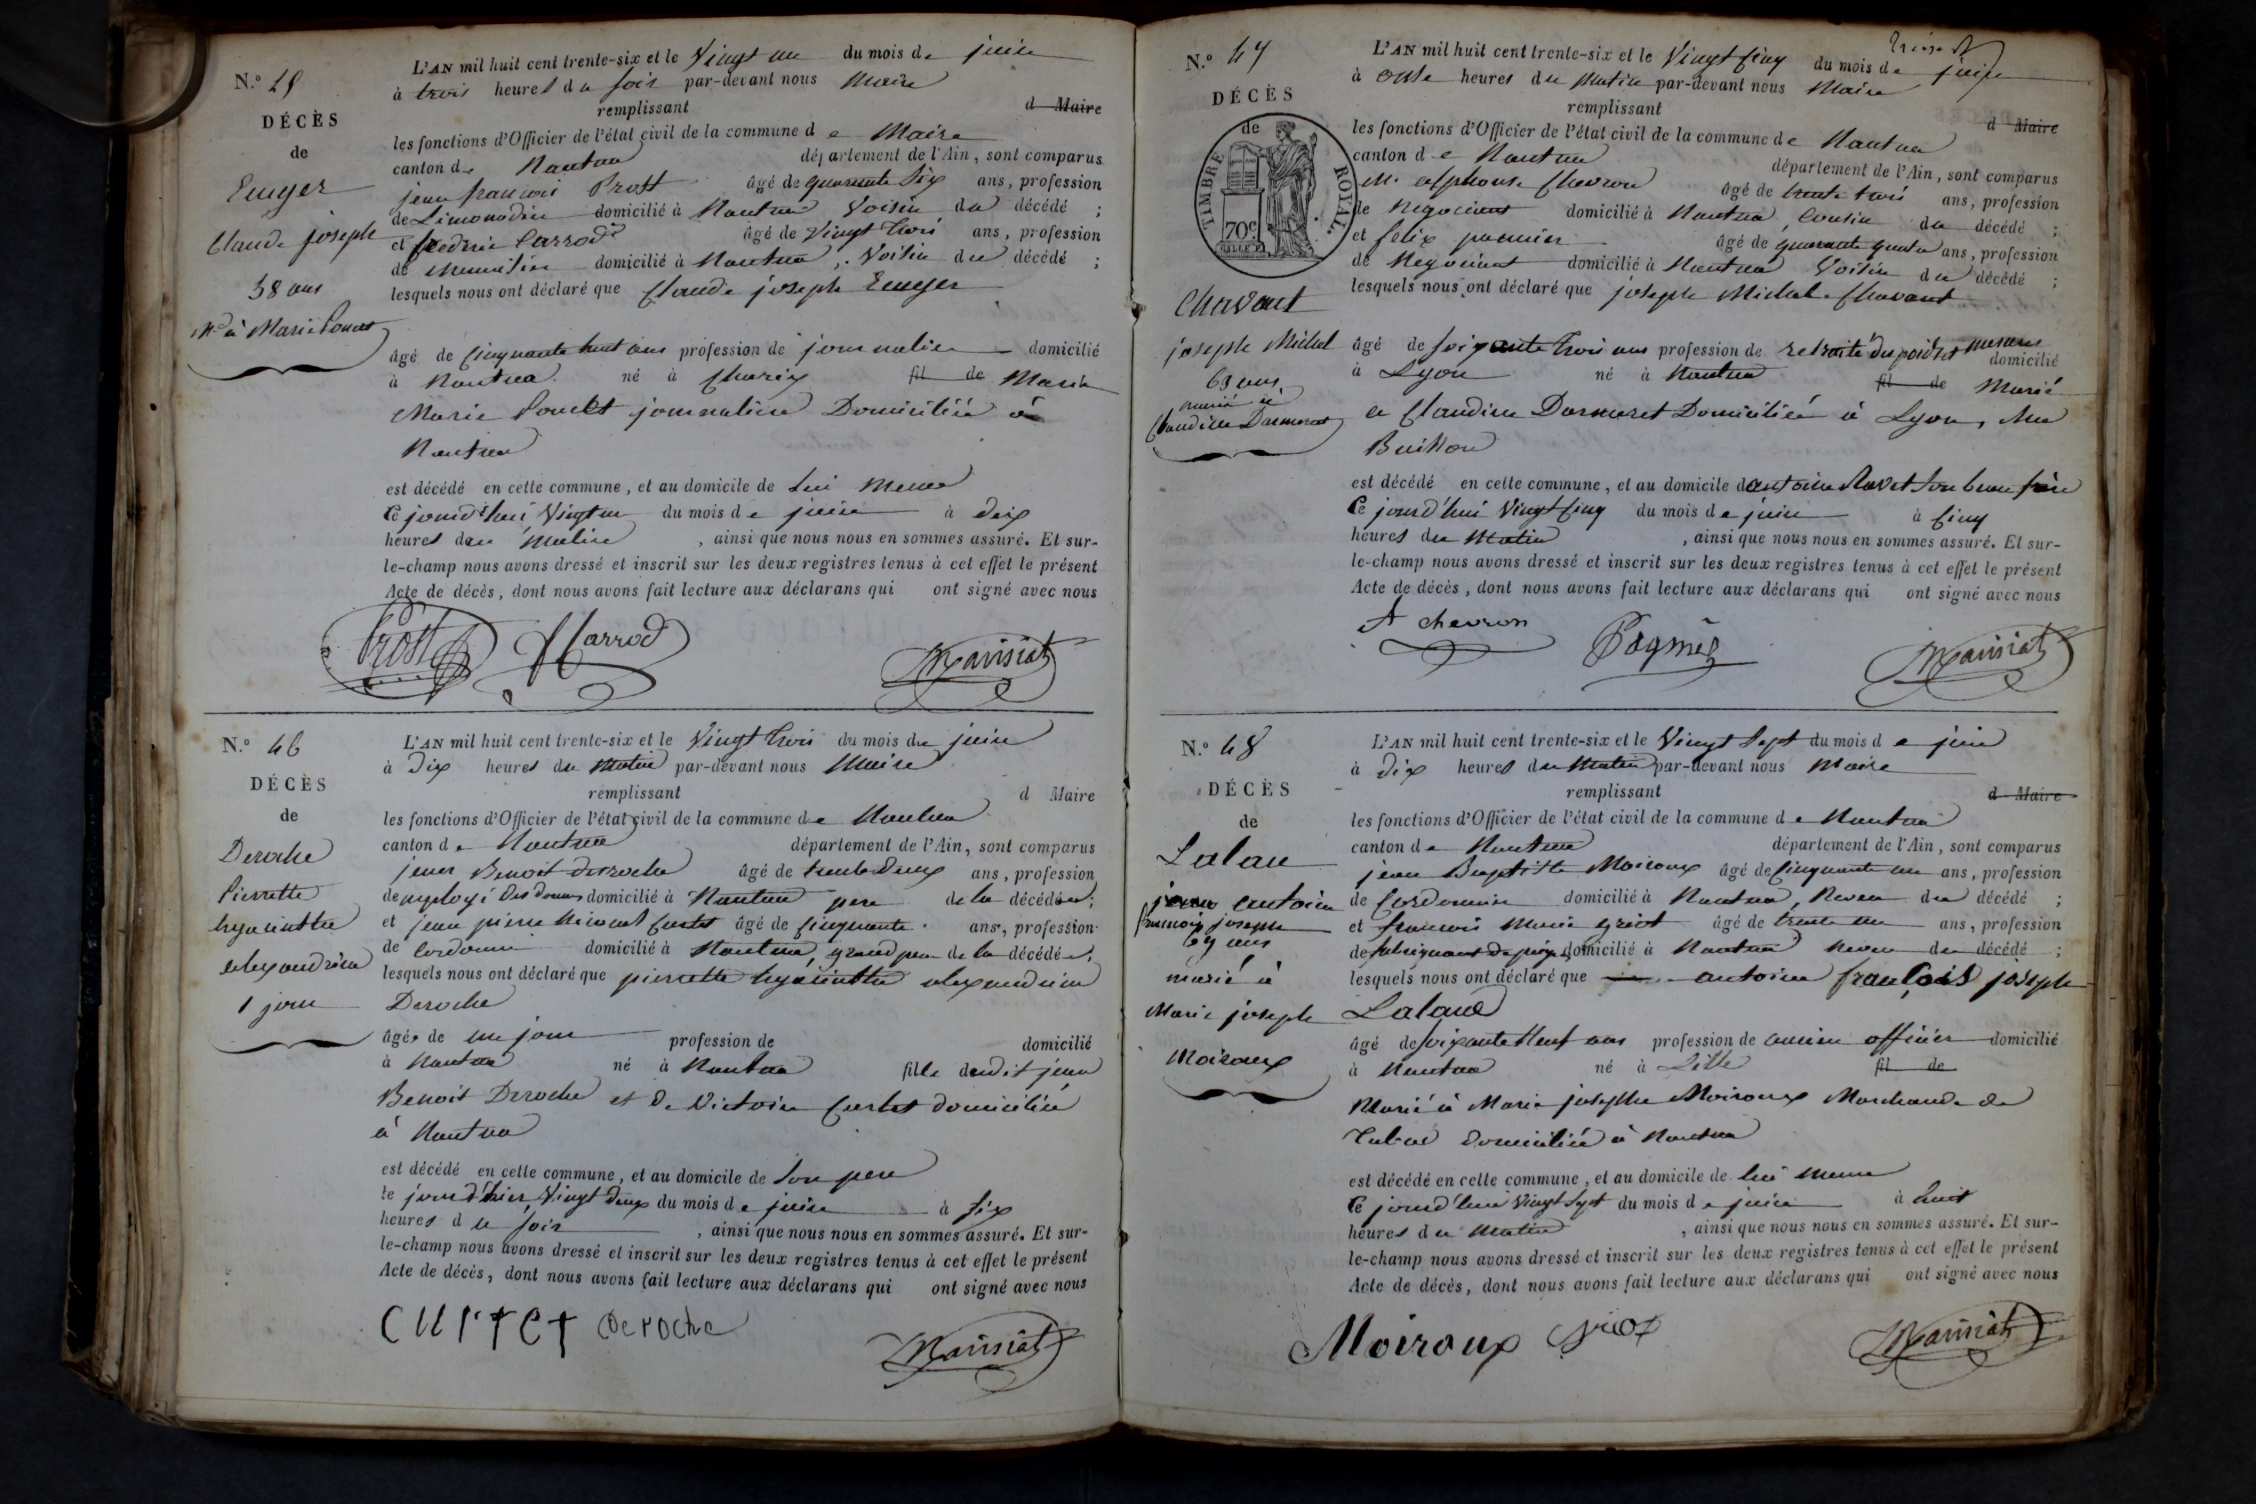 N.º 45
DÉCÈS
de
Emyer
Claude joseph
58 ans
M.é à Marie Pouet
L'AN mil huit cent trente-six et le Vingt un du mois de juin
à trois heures du soir par-devant nous Maire
remplissant d Maire
les fonctions d'Officier de l'état civil de la commune de Maire
canton de Nantua département de l'Ain, sont comparus
jean françois Prost âgé de quarante six ans, profession
de Limonadier domicilié à Nantua Voisin du décédé ;
et frederic Carrod âgé de Vingt trois ans, profession
de domicilié à Nantua, Voisin du décédé ;
lesquels nous ont déclaré que Claude joseph Emyer
âgé de Cinquante huit ans profession de journalier domicilié
à Nantua né à Charix fil de Marié à
Marie Pouet journalière Domiciliée à
Nantua
est décédé en cette commune, et au domicile de lui meme
Ce jourd'hui Vingt un du mois de juin à dix
heures du matin, ainsi que nous nous en sommes assuré. Et sur-
le-champ nous avons dressé et inscrit sur les deux registres tenus à cet effet le présent
Acte de décès, dont nous avons fait lecture aux déclarans qui ont signé avec nous
Prost Carrod Mansiat
N.º 46
DÉCÈS
de
Deroche
Pierrette
hyacinthe
alexandrine
1 jour
L'AN mil huit cent trente-six et le Vingt trois du mois de juin
à Dix heures du Matin par-devant nous Maire
remplissant d Maire
les fonctions d'Officier de l'état civil de la commune de Nantua
canton de Nantua département de l'Ain, sont comparus
jean Benoit deroche âgé de trente deux ans, profession
de employé des Douanes domicilié à Nantua pere de la décédée;
et jean pierre Curtet âgé de Cinquante ans, profession
de Cordonnier domicilié à Nantua, grand pere de la décédée;
lesquels nous ont déclaré que pierrette hyacinthe alexandrine
Deroche
âgée de un jour profession de domicilié
à Nantua né à Nantua fille dudit jean
Benoit Deroche et de Victoire Curtet domiciliée
à Nantua
est décédé en cette commune, et au domicile de Son pere
le jour d'hier, Vingt deux du mois de juin à Six
heures du soir, ainsi que nous nous en sommes assuré. Et sur-
le-champ nous avons dressé et inscrit sur les deux registres tenus à cet effet le présent
Acte de décès, dont nous avons fait lecture aux déclarans qui ont signé avec nous
Curtet deroche Mansiat
N.º 47
DÉCÈS
de
TIMBRE ROYAL.
70c
Chavant
joseph Michel
63 ans
marié à
Claudine Darmeret
L'AN mil huit cent trente-six et le Vingt Cinq du mois de juin
à onze heures du Matin par-devant nous Maire
remplissant d Maire
les fonctions d'Officier de l'état civil de la commune de Nantua
canton de Nantua département de l'Ain, sont comparus
M. alphonse Chevron âgé de trente trois ans, profession
de Negociant domicilié à Nantua, Cousin du décédé ;
et felix pagmier âgé de quarante quatre ans, profession
de Negociant domicilié à Nantua Voisin du décédé ;
lesquels nous ont déclaré que joseph Michel Chavant
âgé de soixante trois ans profession de retraité des poids et mesures domicilié
à Lyon né à Nantua fil de Marié
a Claudine Darmeret Domiciliée à Lyon, Rue
Buisson
est décédé en cette commune, et au domicile d'antoine Ravet son beau frère
Ce jourd'hui Vingt Cinq du mois de juin à Cinq
heures du Matin, ainsi que nous nous en sommes assuré. Et sur-
le-champ nous avons dressé et inscrit sur les deux registres tenus à cet effet le présent
Acte de décès, dont nous avons fait lecture aux déclarans qui ont signé avec nous
A chevron Mansiat
N.º 48
DÉCÈS
de
Lalau
antoine
francois joseph
69 ans
marié à
Marie joseph
Moiroux
L'AN mil huit cent trente-six et le Vingt Sept du mois de juin
à Dix heures du Matin par-devant nous Maire
remplissant d Maire
les fonctions d'Officier de l'état civil de la commune de Nantua
canton de Nantua département de l'Ain, sont comparus
jean Baptiste Moiroux âgé de Cinquante un ans, profession
de Cordonnier domicilié à Nantua, Neveu du décédé ;
et francois Marie griot âgé de trente un ans, profession
de fabriquant de peignes domicilié à Nantua neveu du décédé ;
lesquels nous ont déclaré que antoine francois joseph
Lalau
âgé de soixante Neuf ans profession de ancien officier domicilié
à Nantua né à Lille fil de
Marié à Marie josephe Moiroux Marchande de
Tabac domiciliée à Nantua
est décédé en cette commune, et au domicile de lui meme
Ce jourd'hui Vingt Sept du mois de juin à huit
heures du Matin, ainsi que nous nous en sommes assuré. Et sur-
le-champ nous avons dressé et inscrit sur les deux registres tenus à cet effet le présent
Acte de décès, dont nous avons fait lecture aux déclarans qui ont signé avec nous
Moiroux griot Mansiat